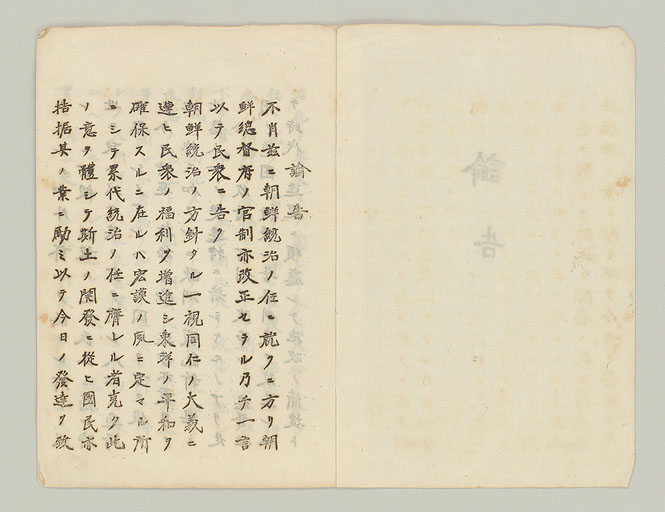 諭告
不肖玆ニ朝鮮統治ノ任ニ就クニ方リ朝
鮮總督府ノ官制亦改正セラル乃チ一言
以テ民衆ニ告ク
朝鮮統治ノ方針タル一視同仁ノ大義ニ
遵ヒ民衆ノ福利ヲ增進シ東洋ノ平和ヲ
確保スルニ在ルハ宏謨ノ夙ニ定マル所
ニシテ累代統治ノ任ニ膺レル者克ク此
ノ意ヲ體シテ斯土ノ開發ニ從ヒ國民亦
拮据其ノ業ニ勵ミ以テ今日ノ發達ヲ致